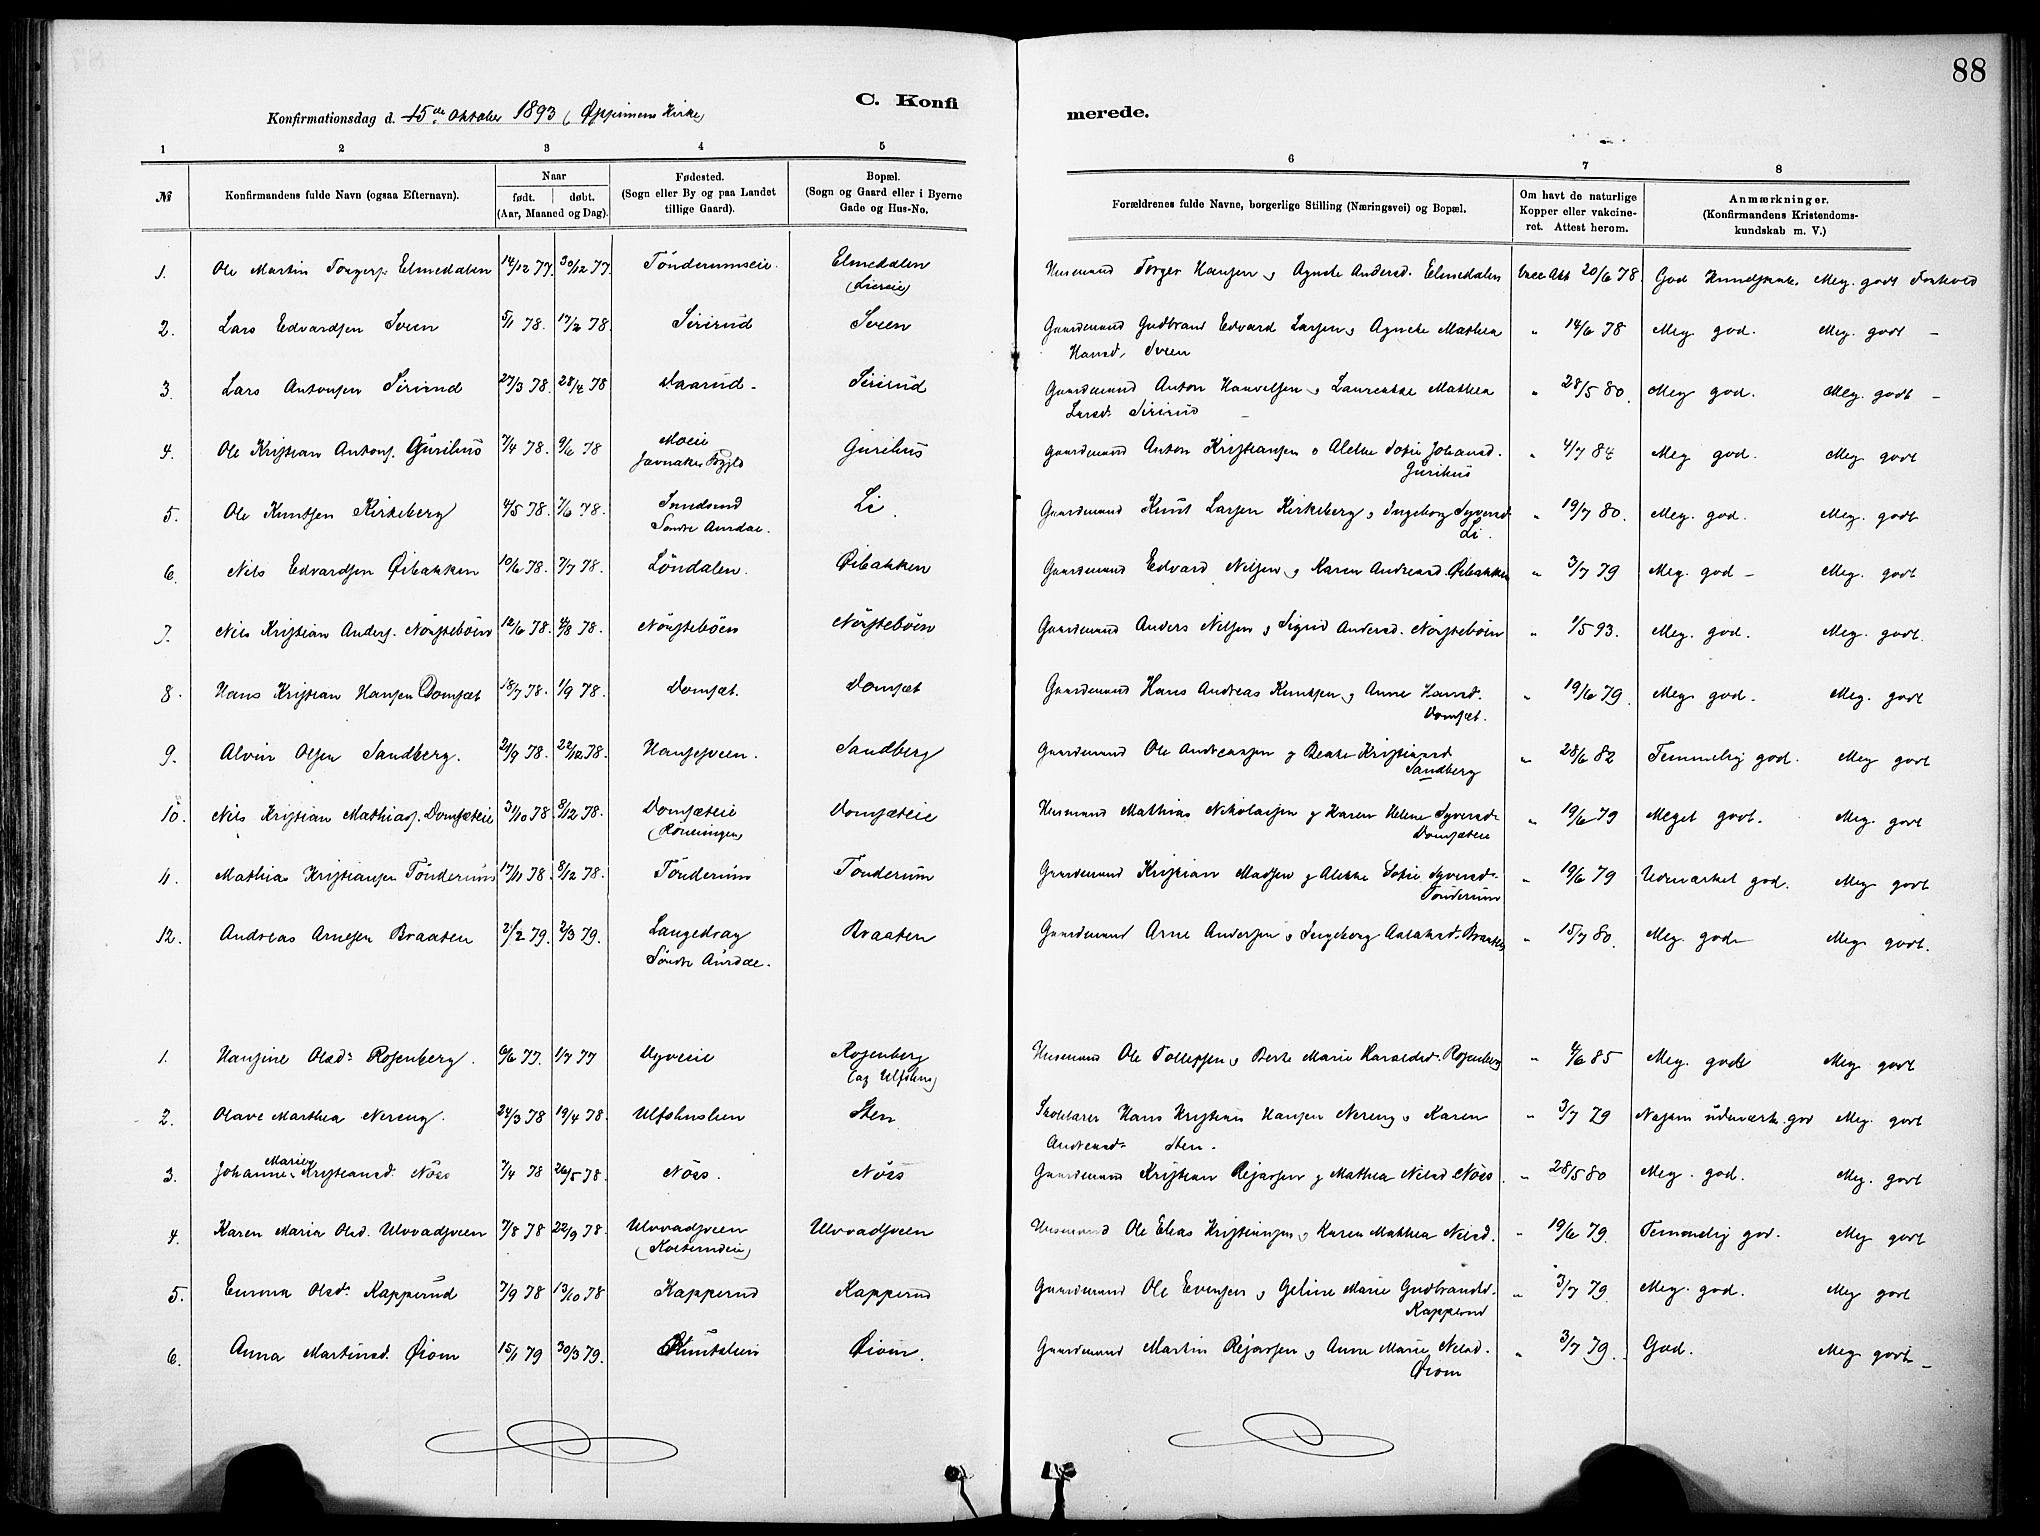 88
C. Konfi
merede.
Konfirmationsdag d. 15de Oktober 1893 (
1 2 3 4 5 6 7 8
№ Konfirmandens fulde Navn (ogsaa Efternavn).
Naar
født. døbt.
(Aar, Maaned og Dag).
Fødested.
(Sogn eller By og paa Landet
tillige Gaard).
Bopæl.
(Sogn og Gaard eller i Byerne
Gade og Hus-No.
Forældrenes fulde Navne, borgerlige Stilling (Næringsvei) og Bopæl.
Om havt de naturlige
Kopper eller vakcine-
ret. Attest herom.
Anmærkninger.
(Konfirmandens Kristendoms-
kundskab m. V.)
1. Ole Martin Torgersen Elmedalen 14/12 77. 30/12 77. Tönderumseie. Elmedalen Husmand Torger Hansen & Agnete Andersd. Elmedalen 20/6 78. God Kundskab. Meg. godt Forhold
2. Lars Edvardsen Sveen 5/1 78. 17/2 78. Sirirud Sveen Gaardmand Gudbrand Edvard Larsen & Agnete Mathea " 14/6 78 Meg god. Meg. godt
Hansd. Sveen
3. Lars Antonsen Sirirud 27/3 78. 28/4 78 Sirirud Gaardmand Anton " 28/5 80. Meg god. Meg. godt
Larsd. Sirirud
4. Ole Kristian Antons. Gurihus 7/4 78. 9/6 78 Moeie Gurihus Gaardmand Anton Kristiansen & Alette Sofie Johansd. " 4/7 84 Meg god. Meg godt
Gurihus
5. Ole Knutsen Kirkeberg 4/5 78. 7/6 78. Li Gaardmand Knut Larsen Kirkeberg & Ingeborg Syversd. " 19/7 80. Meg. god. Meg. godt
Söndre Aurdal. Li.
6. Nils Edvardsen Øibakken 10/6 78. 7/7 78. Löndalen. Øibakken Gaardmand Edvard Nilsen & Karen Andreasd. Øibakken " 3/7 79 Meg. god Meg. godt
7. Nils Kristian Anders. Nörsteböen 12/6 78. 4/8 78. Nörsteböen Nörsteböen Gaardmand Anders Nilsen & Sigrid Andersd. Nörsteböen " 1/5 93. Meg. god. Meg. godt.
8. Hans Kristian Hansen Domsæt 18/7 78. 1/9 78. Domsæt. Domsæt Gaardmand Hans Andreas Knutsen & Anne Larsd. " 19/6 79 Meg god. Meg. godt
Domsæt.
9. Alvin Olsen Sandberg. 21/9 78. 22/12 78. Hansesveen. Sandberg Gaardmand Ole Andreassen & Beate Kristiansd. " 28/6 82 Temmelig god. Meg godt
Sandberg
10. Nils Kristian Mathias. Domsæteie 31/10 78 8/12 78. Domsæteie Domsæteie Husmand Mathias Nikolaisen & Karen Helene Syversd. " 19/6 79 Meget godt. Meg. godt
Domsæteie
11. Mathias Kristiansen Tönderum 17/11 78. 8/12 78. Tönderum Tönderum Gaardmand Kristian Madsen & Alette Sofie Syversd. " 19/6 79 Udmærket god. Meg godt
Tönderum
12. Andreas Arnesen Braaten 2/2 79. 2/3 79. Langedrag Braaten Gaardmand Arne Andersen & Ingeborg Aslaksd. Braaten " 15/7 80. Meg. god Meg godt.
Söndre Aurdal.
1. Hansine Olsd. Rosenberg. 6/6 77. 1/7 77 Rosenberg Husmand Ole Tollefsen & Berte Marie Haraldsd. Rosenberg " 4/6 85 Meg. godt Meg godt
2. Olave Marthea Nereng. 24/3 78 19/4 78. Sten Skolelærer Hans Kristian Hansen Nereng & Karen " 3/7 79 Næsten udmærk. god Meg. godt
Andreasd. Sten.
3. Johanne Marie Kristiansd. Nöss 7/4 78 26/5 78. Nöss. Nöss Gaardmand Kristian Reiersen & Mathea Nilsd Nöss. " 28/5 80 Meg. god. Meg. godt
4. Karen Maria Olsd. Ulvvadsveen 7/8 78 22/9 78. Ulvvadsveen Ulvvadsveen Husmand Ole Elias Kristiansen & Karen Mathea Nilsd. " 19/6 79. Temmelig god. Meg godt
5. Emma Olsd. Kapperud 7/9 78 13/10 78 Kapperud Kapperud Gaardmand Ole Evensen & Geline Marie Gudbrandsd. " 3/7 79. Meg. god. Meg godt
Kapperud
6. Anna Martinsd. Øiom 15/1 79 30/3 79. Øiom. Gaardmand Martin Reiersen & Anne Marie Nilsd. " 3/7 79. God. Meg godt
Øiom